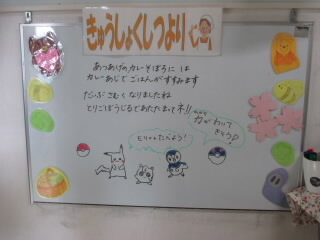 きゅうしょくしつより
あつあげのカレーそぼろに は
カレーあじで ごはんが すすみます
だいぶ さむく なりましたね
とりごぼうじるで あたたまって ネ!!
もりもりたべよう!
力がわいて
きそう♪